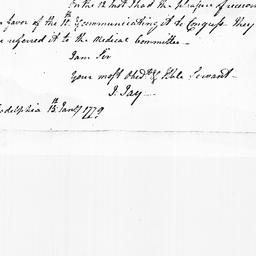 On the 12 Inst I had the pleasure of
favor of the 11th & communicating it to Congress. They
referred it to the Medical Committee—
I am Sir
Your most Obedt & Hble Servant—
J. Jay—
adelphia 13th Jany 1779